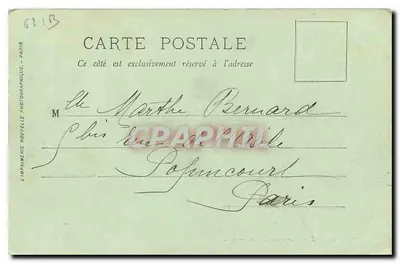 621B
CARTE POSTALE
Ce côté est exclusivement réservé à l'adresse
Mlle Marthe Bernard
bis
CPAPHIL
Popincourt
Paris
L'IMPRIMERIE NOUVELLE PHOTOGRAPHIQUE. - PARIS